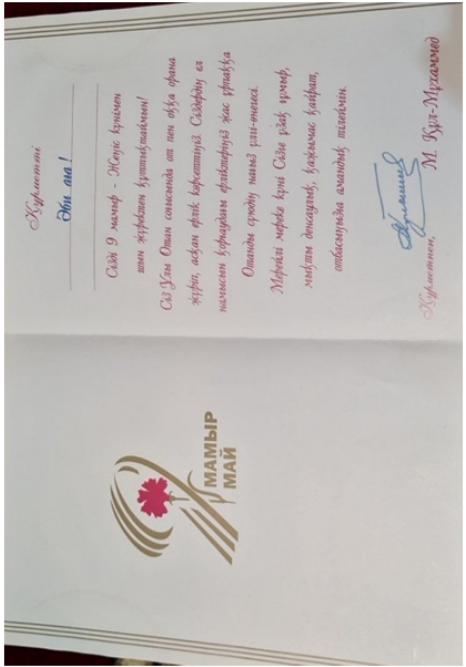 МАМЫР
МАЙ
Құрметті
Әби аға!
Сізді 9 мамыр - Жеңіс күнімен
шын жүректен құттықтаймын!
Сіз Ұлы Отан соғысында от пен оққа орана
жүріп, асқан ерлік көрсеттіңіз. Сіздердің ел
намысын қорғаудағы ерліктеріңіз жас ұрпаққа
Отанды сүюдің нағыз үлгі-өнегесі.
Мерейлі мереке күні Сізге ұзақ ғұмыр,
мықты денсаулық, қажымас қайрат,
отбасыңызға амандық тілеймін.
Құрметпен,
М Құл-Мұхаммед